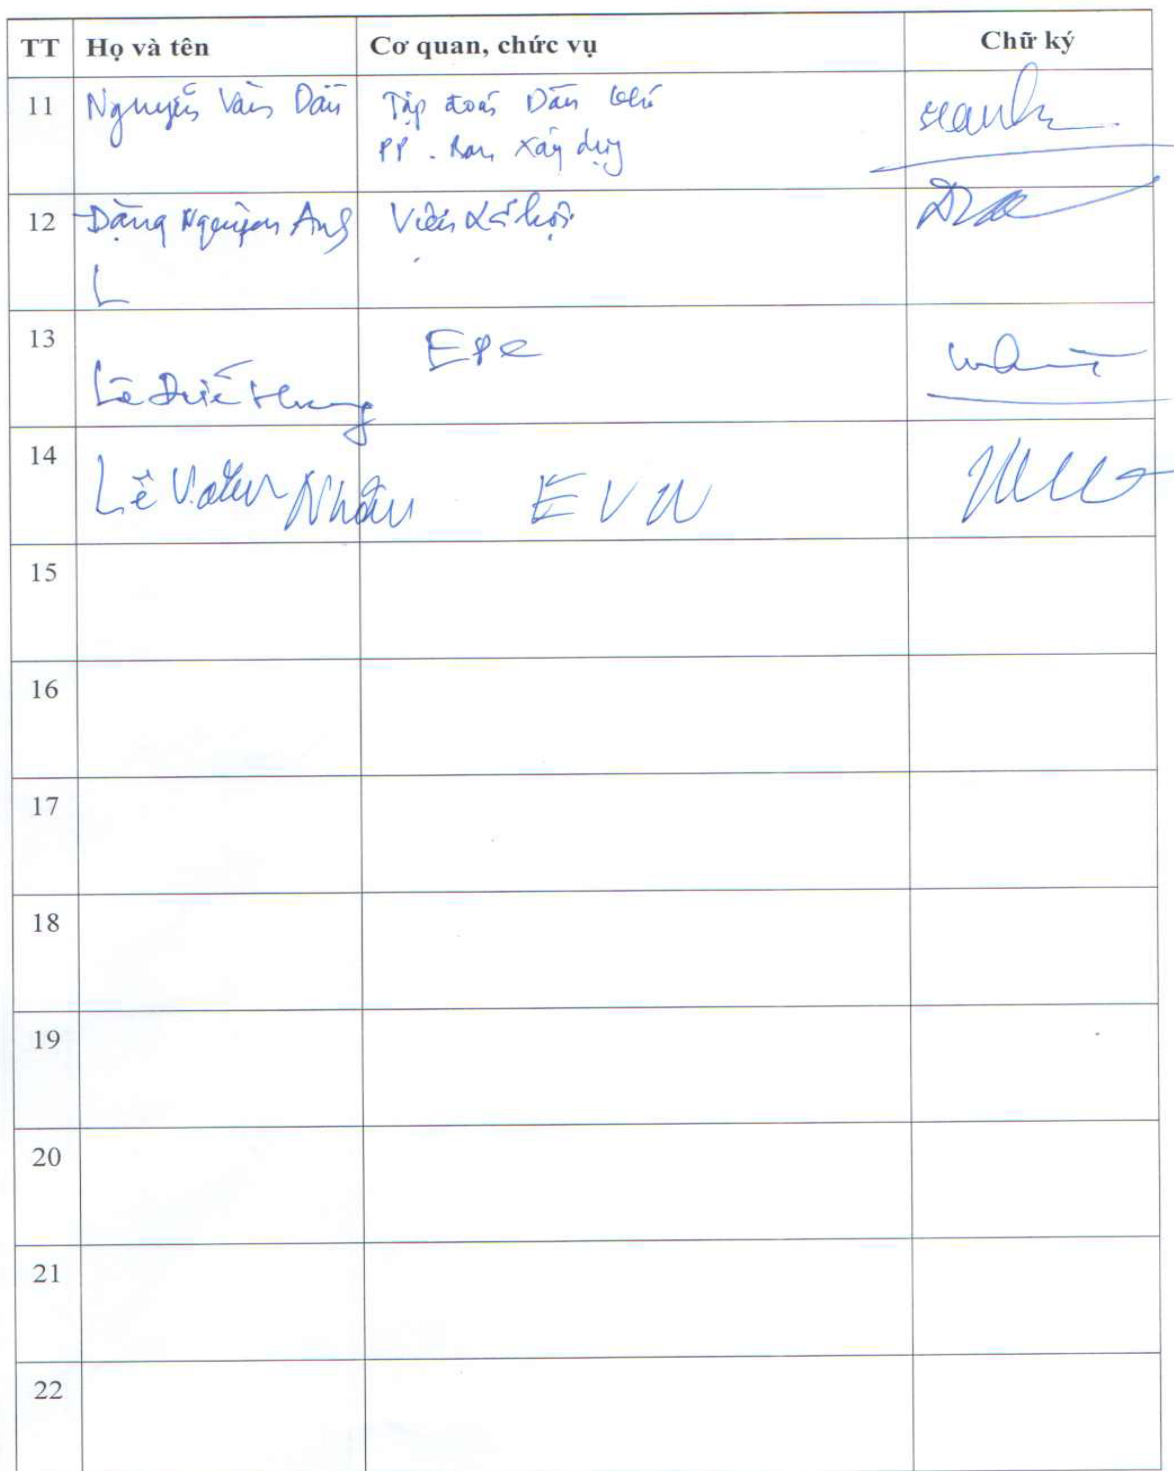 TT Họ và tên Cơ quan, chức vụ Chữ ký
11 Nguyễn Văn Dân Tập đoàn Dầu khí
PP. Ban Xây dựng
12 Đặng Nguyên Anh Viện Xã hội
13 EPC
Lê
14 Lê Văn Nhân EVN
15
16
17
18
19
20
21
22